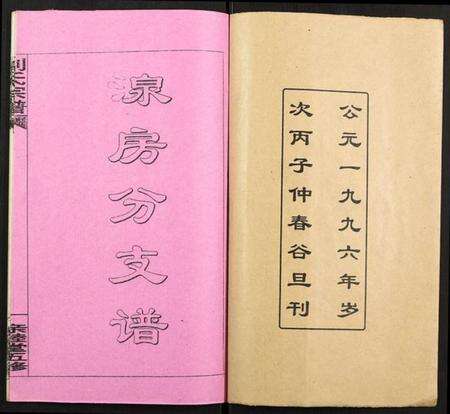 公元一九九六年岁
次丙子仲春谷旦刊
湶房分支谱
刘氏宗谱